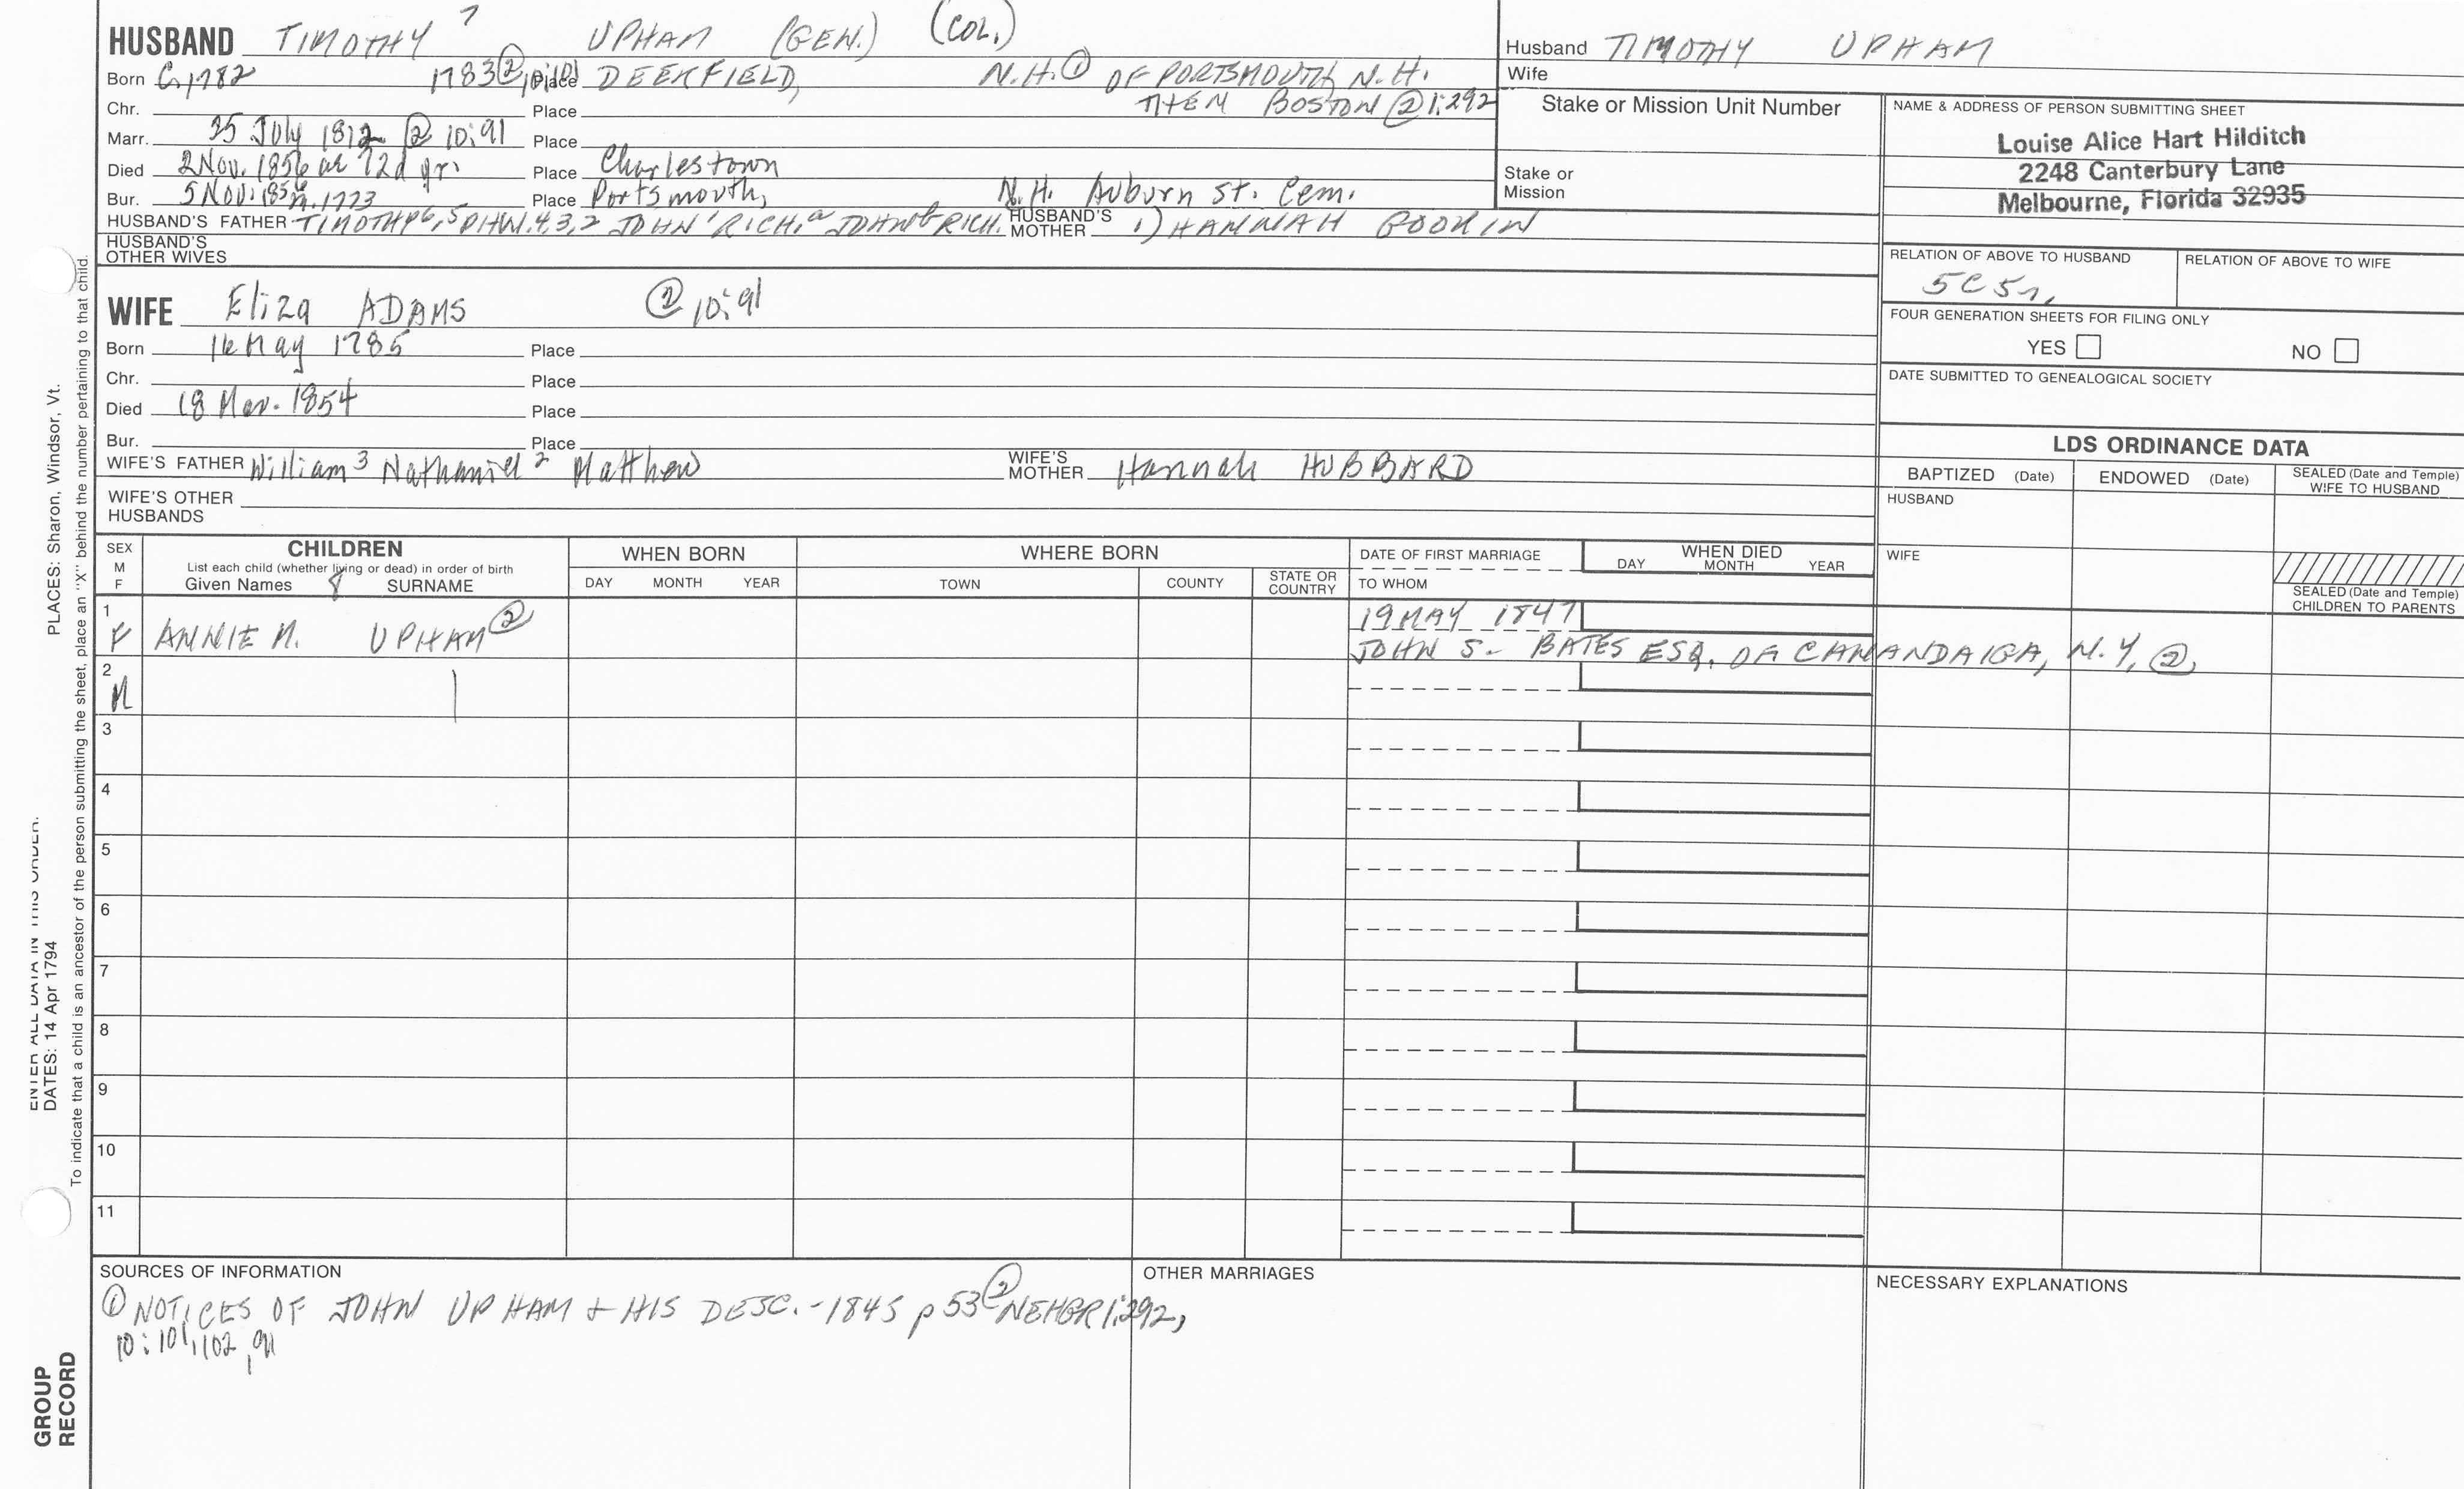 HUSBAND TIMOTHY 7 UPHAM (GEN.) (COL.)
Born C,1782 1783 ②,10;101 Place DEERFIELD, N.H.① OF PORTSMOUTH, N.H.
THEN BOSTON ② 1:292
Chr. Place
Marr. 25 July 1812 ② 10:91 Place
Died 2 Nov. 1856 ae 72d yr. Place Charlestown
Bur. 5 Nov. 1856 Place Portsmouth, N.H. Auburn St. Cem.
HUSBAND'S FATHER TIMOTHY 6, 5 4, 3, 2 JOHN 1 RICH. a JOHN b RICH. HUSBAND'S MOTHER 1) HANNAH GOOKIN
HUSBAND'S OTHER WIVES
Husband TIMOTHY UPHAM
Wife
Stake or Mission Unit Number
Stake or
Mission
NAME & ADDRESS OF PERSON SUBMITTING SHEET
Louise Alice Hart Hilditch
2248 Canterbury Lane
Melbourne, Florida 32935
RELATION OF ABOVE TO HUSBAND RELATION OF ABOVE TO WIFE
5C5r,
FOUR GENERATION SHEETS FOR FILING ONLY
YES NO
DATE SUBMITTED TO GENEALOGICAL SOCIETY
WIFE Eliza ADAMS ② 10:91
Born 16 May 1785 Place
Chr. Place
Died 18 Mar. 1854 Place
Bur. Place
WIFE'S FATHER William 3 Nathaniel 2 Matthew WIFE'S MOTHER Hannah HUBBARD
WIFE'S OTHER
HUSBANDS
LDS ORDINANCE DATA
BAPTIZED (Date) ENDOWED (Date) SEALED (Date and Temple) WIFE TO HUSBAND
HUSBAND
WIFE
SEALED (Date and Temple)
CHILDREN TO PARENTS
SEX M F
CHILDREN
List each child (whether living or dead) in order of birth
Given Names 8 SURNAME
WHEN BORN
DAY MONTH YEAR
WHERE BORN
TOWN COUNTY STATE OR COUNTRY
DATE OF FIRST MARRIAGE
TO WHOM
WHEN DIED
DAY MONTH YEAR
1 19 MAY 1847
F ANNIE M. UPHAM ② JOHN S. BATES ESQ. OF CANANDAIGA, N.Y. ②,
2
M
3
4
5
6
7
8
9
10
11
SOURCES OF INFORMATION
① NOTICES OF JOHN UPHAM + HIS DESC. - 1845 p 53 ② NEHGR 1:292,
10:101,102,91
OTHER MARRIAGES
NECESSARY EXPLANATIONS
PLACES: Sharon, Windsor, Vt.
ENTER ALL DATA IN THIS ORDER:
DATES: 14 Apr 1794
To indicate that a child is an ancestor of the person submitting the sheet, place an "X" behind the number pertaining to that child.
GROUP
RECORD